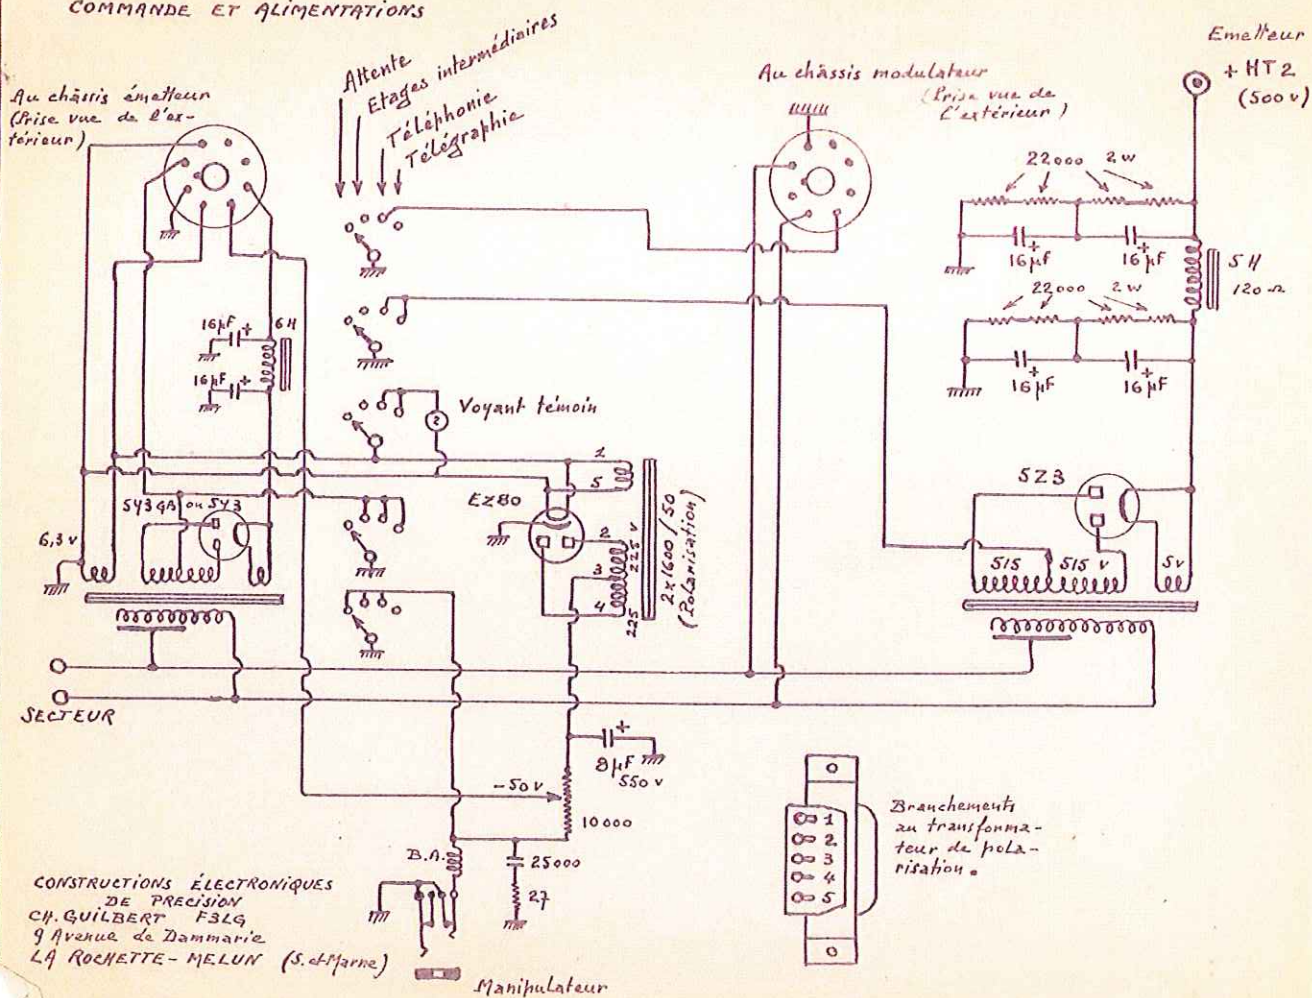 COMMANDE ET ALIMENTATIONS
Emetteur
+ HT 2
(500 v)
Au châssis émetteur
(Prise vue de l'ex-
térieur)
Attente
Etages intermédiaires
Téléphonie
Télégraphie
Au châssis modulateur
(Prise vue de
l'extérieur)
22000 2 w
16µF
16µF
5 H
120 Ω
22000 2 w
16µF
16µF
16µF
6 H
16µF
Voyant témoin
5Y3GB ou 5Y3
6,3 v
EZ80
1
5
2
3
4
225 v
225
2x1600/50
(Polarisation)
5Z3
515
515 v
5v
SECTEUR
8µF
550 v
-50 v
10000
B.A.
25000
27
Manipulateur
1
2
3
4
5
Branchements
au transforma-
teur de pola-
risation.
CONSTRUCTIONS ÉLECTRONIQUES
DE PRECISION
CH. GUILBERT F3LG
9 Avenue de Dammarie
LA ROCHETTE-MELUN (S.et-Marne)